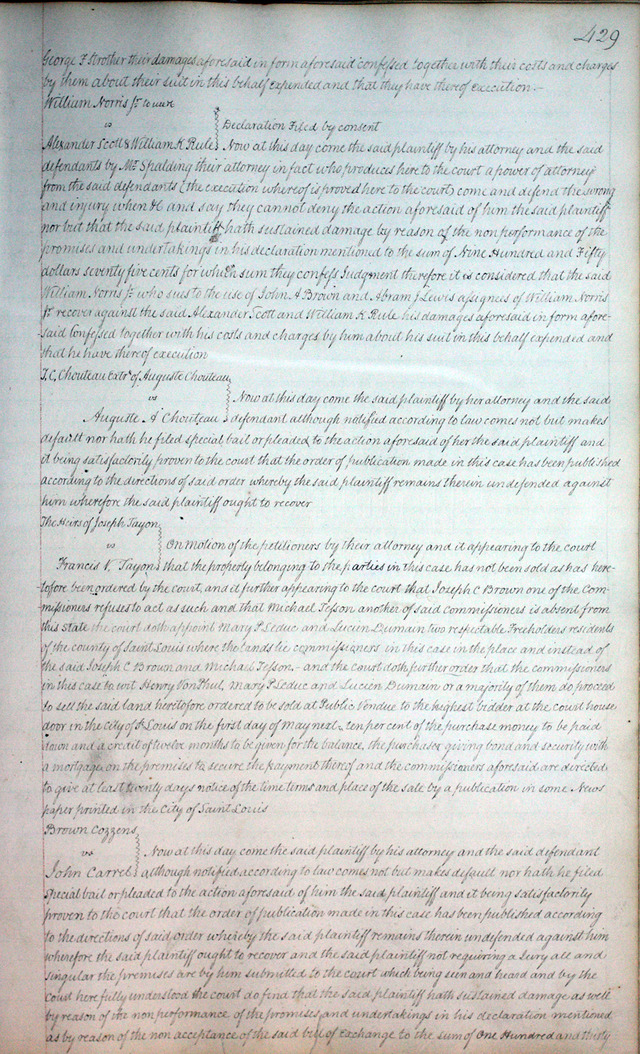 429
George F Strother their damages aforesaid in form aforesaid confessed together with their costs and charges
by them about their suit in this behalf expended and that they have thereof execution.-
William Norris Jr to use
vs Declaration Filed by consent
Alexander Scott & William K Rule Now at this day come the said plaintiff by his attorney and the said
defendants by Mr Spalding their attorney in fact who produces here to the court a power of attorney
from the said defendants & the execution whereof is proved here to the court come and defend the wrong
and injury when &c and say they cannot deny the action aforesaid of him the said plaintiff
nor but that the said plaintiff hath sustained damage by reason of the non performance of the
promises and undertakings in his declaration mentioned to the sum of Nine Hundred and Fifty
dollars seventy five cents for which sum they confess Judgment therefore it is considered that the said
William Norris Jr who sues to the use of John A Brown and Abram J Lewis assignees of William Norris
Jr recover against the said Alexander Scott and William K Rule his damages aforesaid in form afore-
said Confessed together with his costs and charges by him about his suit in this behalf expended and
that he have thereof execution
T. C, Chouteau Extrx of Auguste Chouteau
vs Now at this day come the said plaintiff by her attorney and the said
Auguste A Chouteau defendant although notified according to law comes not but makes
default nor hath he filed special bail or pleaded to the action aforesaid of her the said plaintiff and
it being satisfactorily proven to the court that the order of publication made in this case has been published
according to the directions of said order whereby the said plaintiff remains therein undefended against
him wherefore the said plaintiff ought to recover
The Heirs of Joseph Tayon
vs On motion of the petitioners by their attorney and it appearing to the court
Francis V. Tayon that the property belonging to the parties in this case has not been sold as has here-
-tofore been ordered by the court, and it further appearing to the court that Joseph C Brown one of the Com-
-missioners refuses to act as such and that Michael Tesson another of said commissioners is absent from
this State the court doth appoint Mary P Leduc and Lucien Dumain two respectable Freeholders residents
of the county of Saint Louis where the lands lie commissioners in this case in the place and instead of
the said Joseph C Brown and Michael Tesson.- and the court doth further order that the commissioners
in this case to wit Henry Von Phul, Mary P Leduc and Lucien Dumain or a majority of them do proceed
to sell the said land heretofore ordered to be sold at Public Vendue to the highest bidder at the court house
door in the city of St Louis on the first day of May next - ten per cent of the purchase money to be paid
down and a credit of twelve months to be given for the balance, the purchaser giving bond and security with
a mortgage on the premises to secure the payment thereof and the commissioners aforesaid are directed
to give at least twenty days notice of the time terms and place of the sale by a publication in some News
paper printed in the City of Saint Louis
Brown Cozzens
vs Now at this day come the said plaintiff by his attorney and the said defendant
John Carrel although notified according to law comes not but makes default nor hath he filed
special bail or pleaded to the action aforesaid of him the said plaintiff and it being satisfactorily
proven to the court that the order of publication made in this case has been published according
to the directions of said order whereby the said plaintiff remains therein undefended against him
wherefore the said plaintiff ought to recover and the said plaintiff not requiring a Jury all and
singular the premises are by him submitted to the court which being seen and heard and by the
Court here fully understood the court do find that the said plaintiff hath sustained damage as well
by reason of the non performance of the promises and undertakings in his declaration mentioned
as by reason of the non acceptance of the said bill of exchange to the sum of One Hundred and thirty